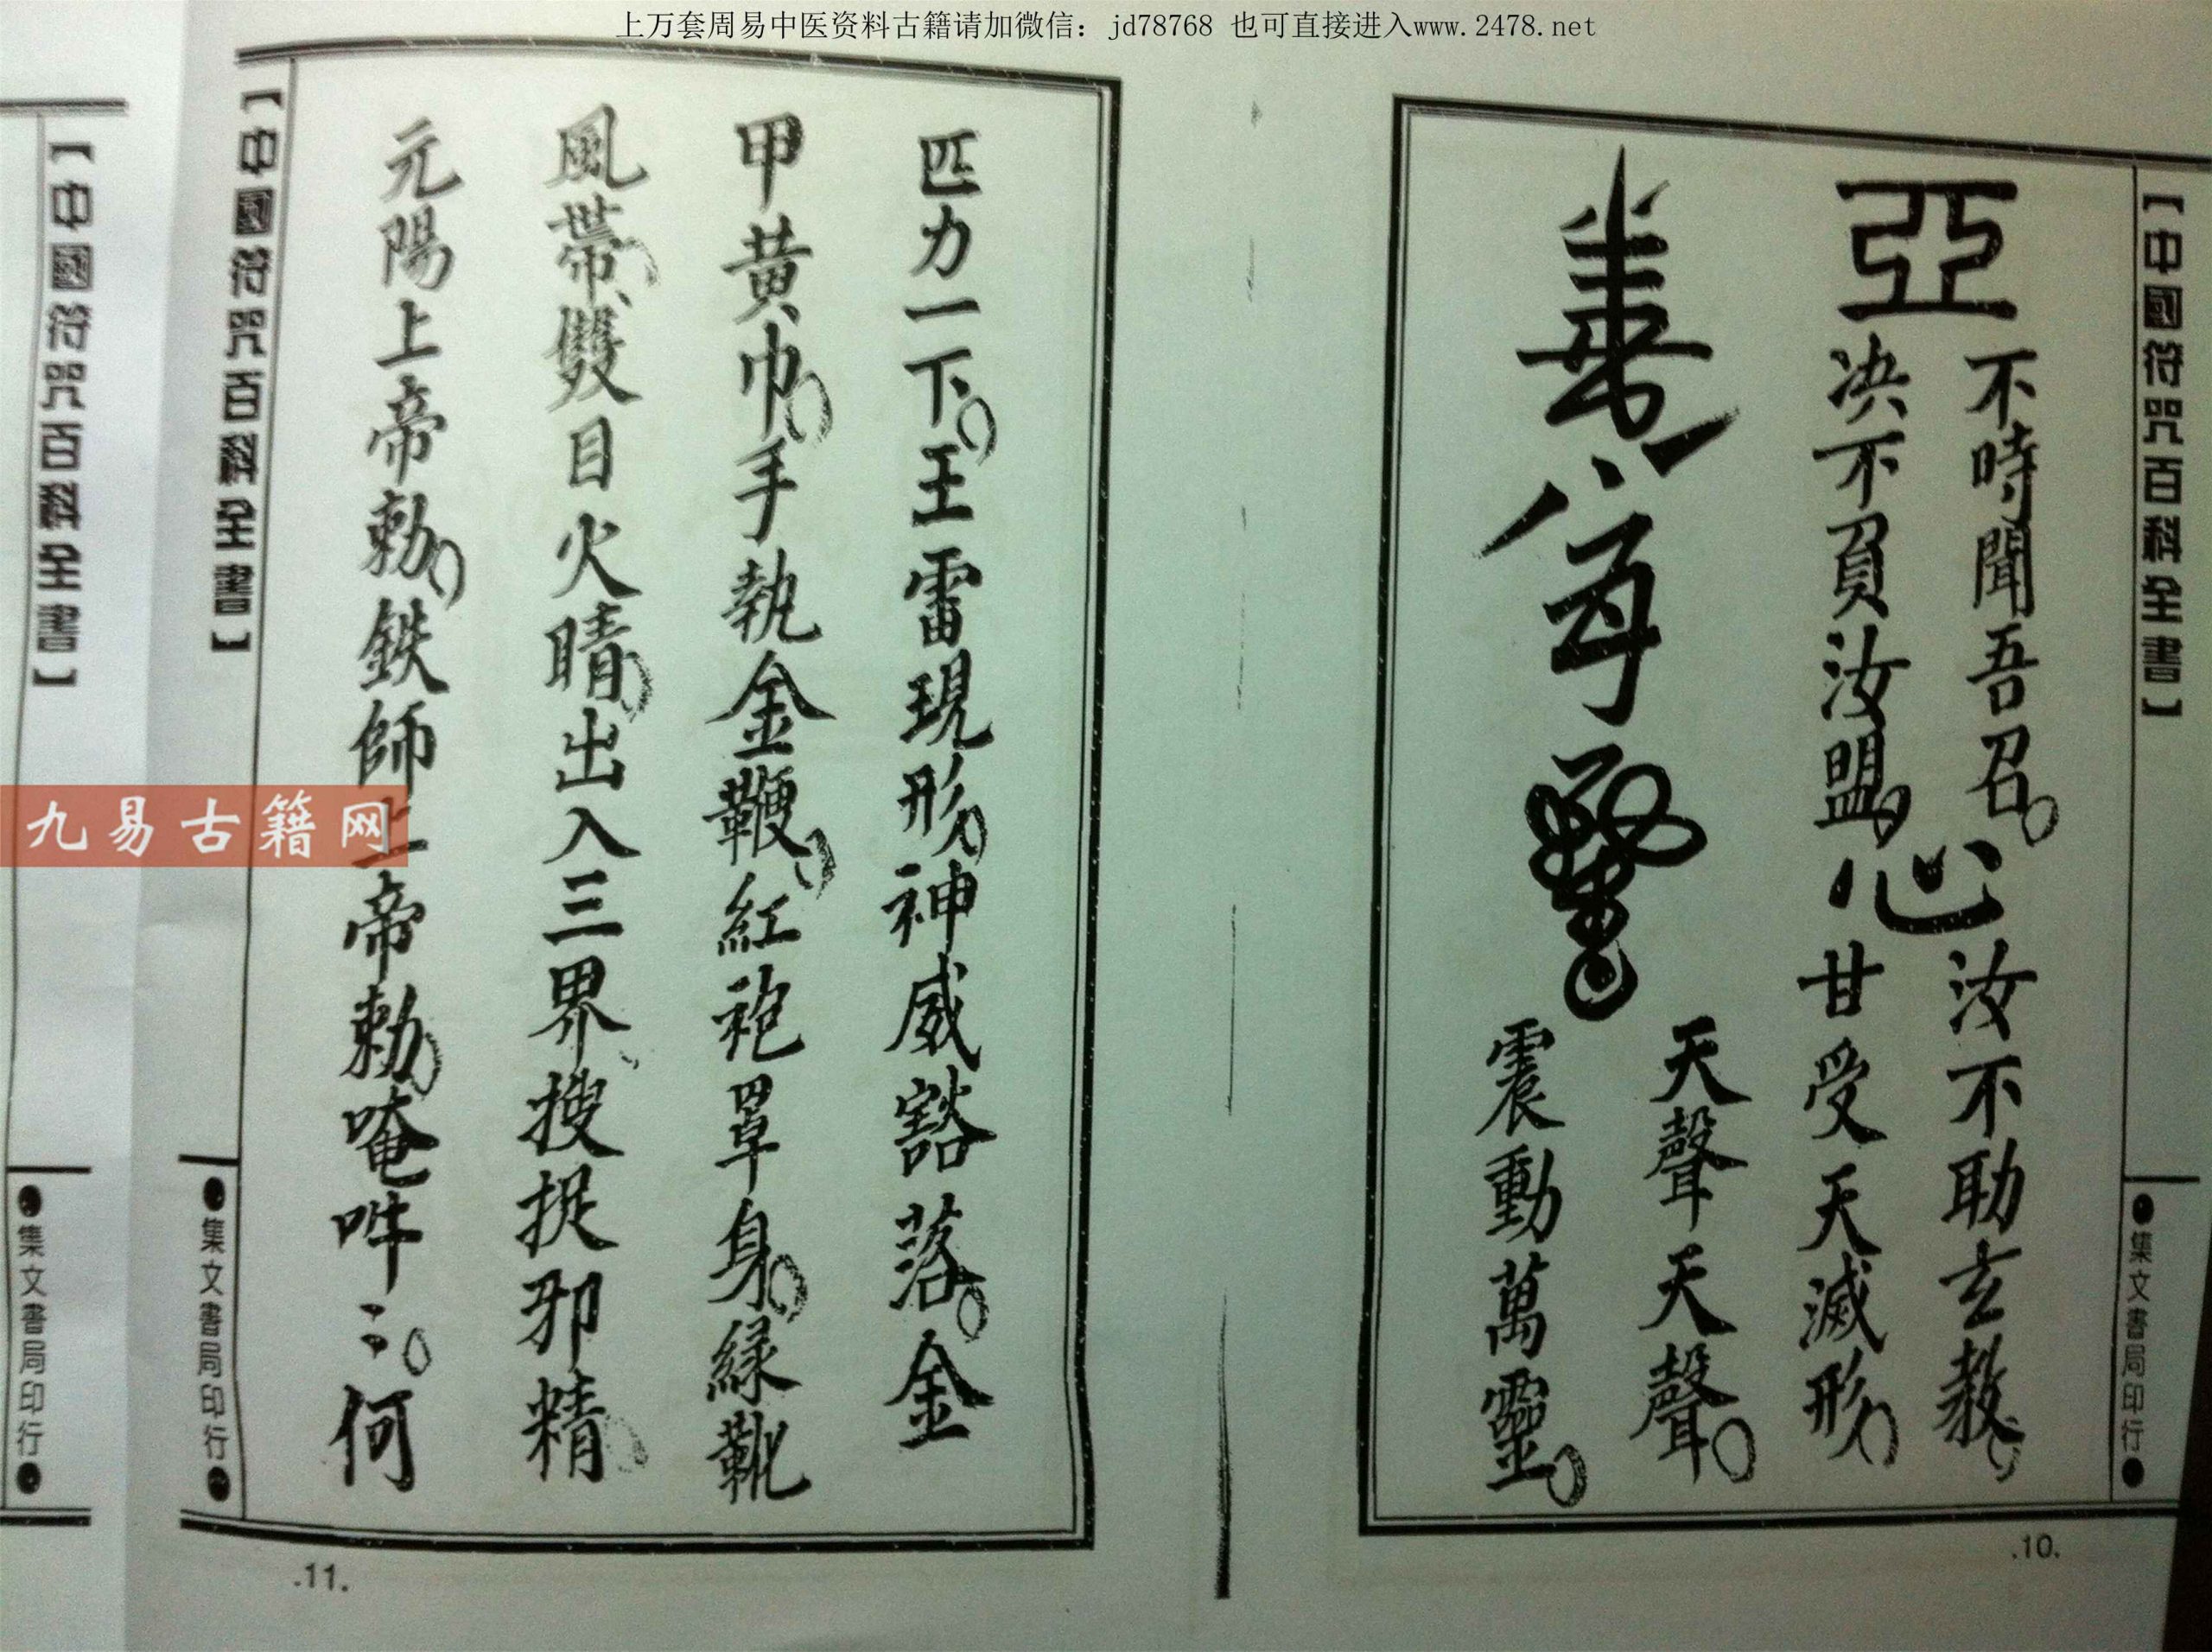 上万套周易中医资料古籍请加微信：jd78768 也可直接进入www.2478.net
【中國符咒百科全書】
●集文書局印行●
亞
不時聞吾召。
決不負汝盟。
心
汝不助玄教。
甘受天滅形。
天聲天聲。
震動萬靈。
.10.
匹力一下。王雷現形。神威豁落。金
甲黃巾。手執金鞭。紅袍罩身。綠靴
風帶。雙目火睛。出入三界、搜捉邪精。
元陽上帝勅。鉄師上帝勅。唵吽〻。何
【中國符咒百科全書】
●集文書局印行●
.11.
【中國符咒百科全書】
●集文書局印行●
九易古籍网